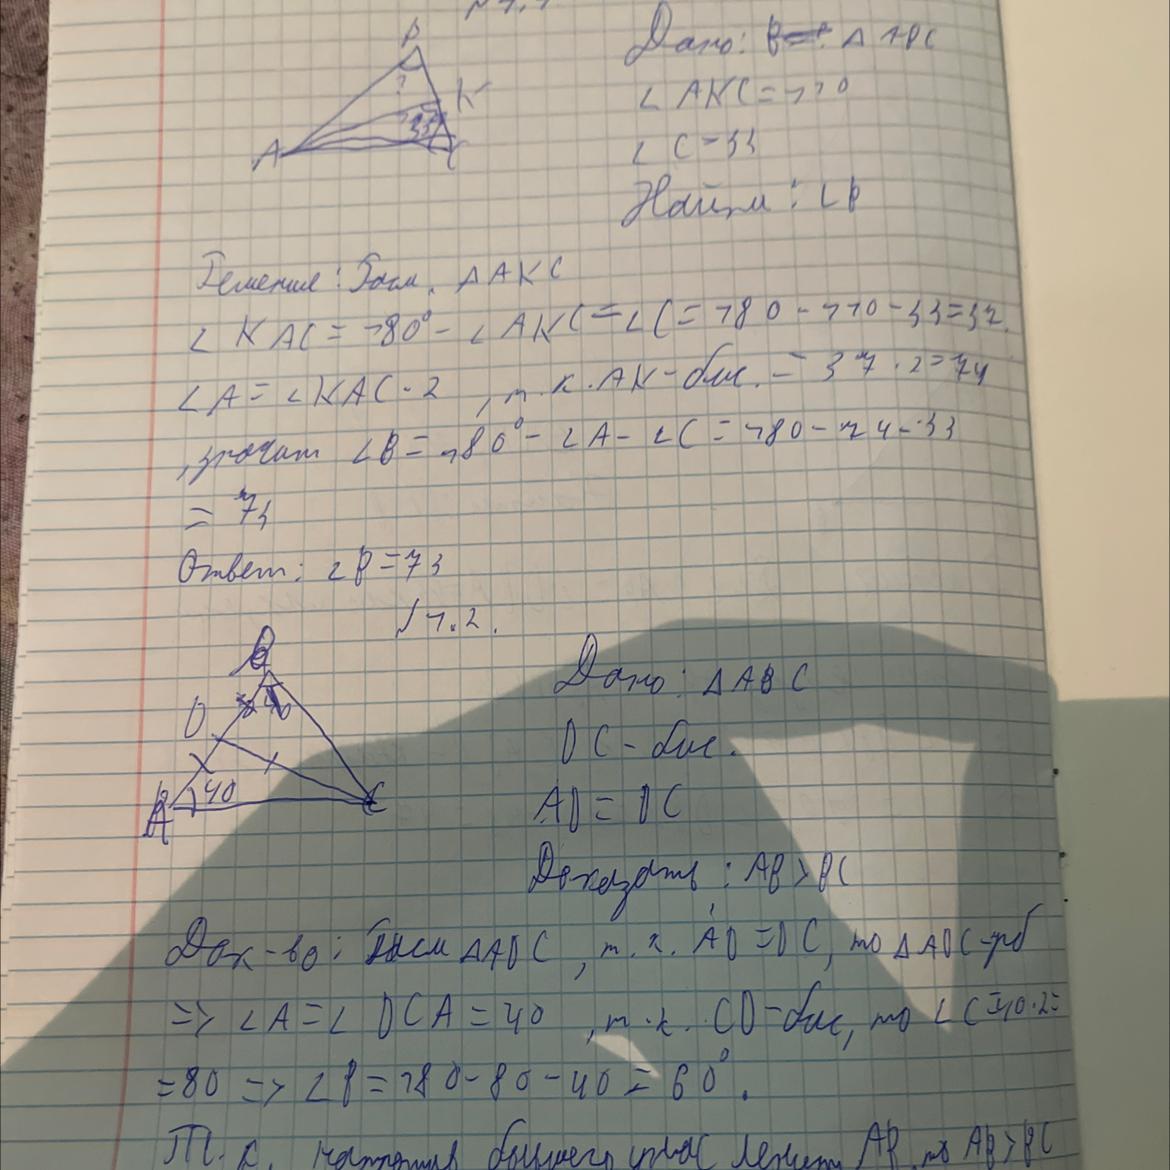 B
?
K
33
A
C
Дано: B= . △ ABC
∠ AKC = 110
∠ C = 33
Найти: ∠B
Решение: Расм. △AKC
∠ KAC = 180° - ∠ AKC = ∠C = 180 - 110 - 33 = 37.
∠A = ∠KAC · 2 , т.к. AK - бис. = 37 · 2 = 74
, значит ∠B = 180° - ∠A - ∠C = 180 - 74 - 33
= 73
Ответ: ∠B = 73
№1.2.
B
D
40
A
C
Дано: △ABC
DC - бис.
AD = DC
Доказать: AB > BC
Док-во: Расм △ADC, т.к. AD = DC, то △ADC - рб
=> ∠A = ∠ DCA = 40 , т.к. CD - бис, то ∠C = 40·2 =
= 80 => ∠B = 180 - 80 - 40 = 60°.
Т.к. напротив большего лежит AB, то AB > BC